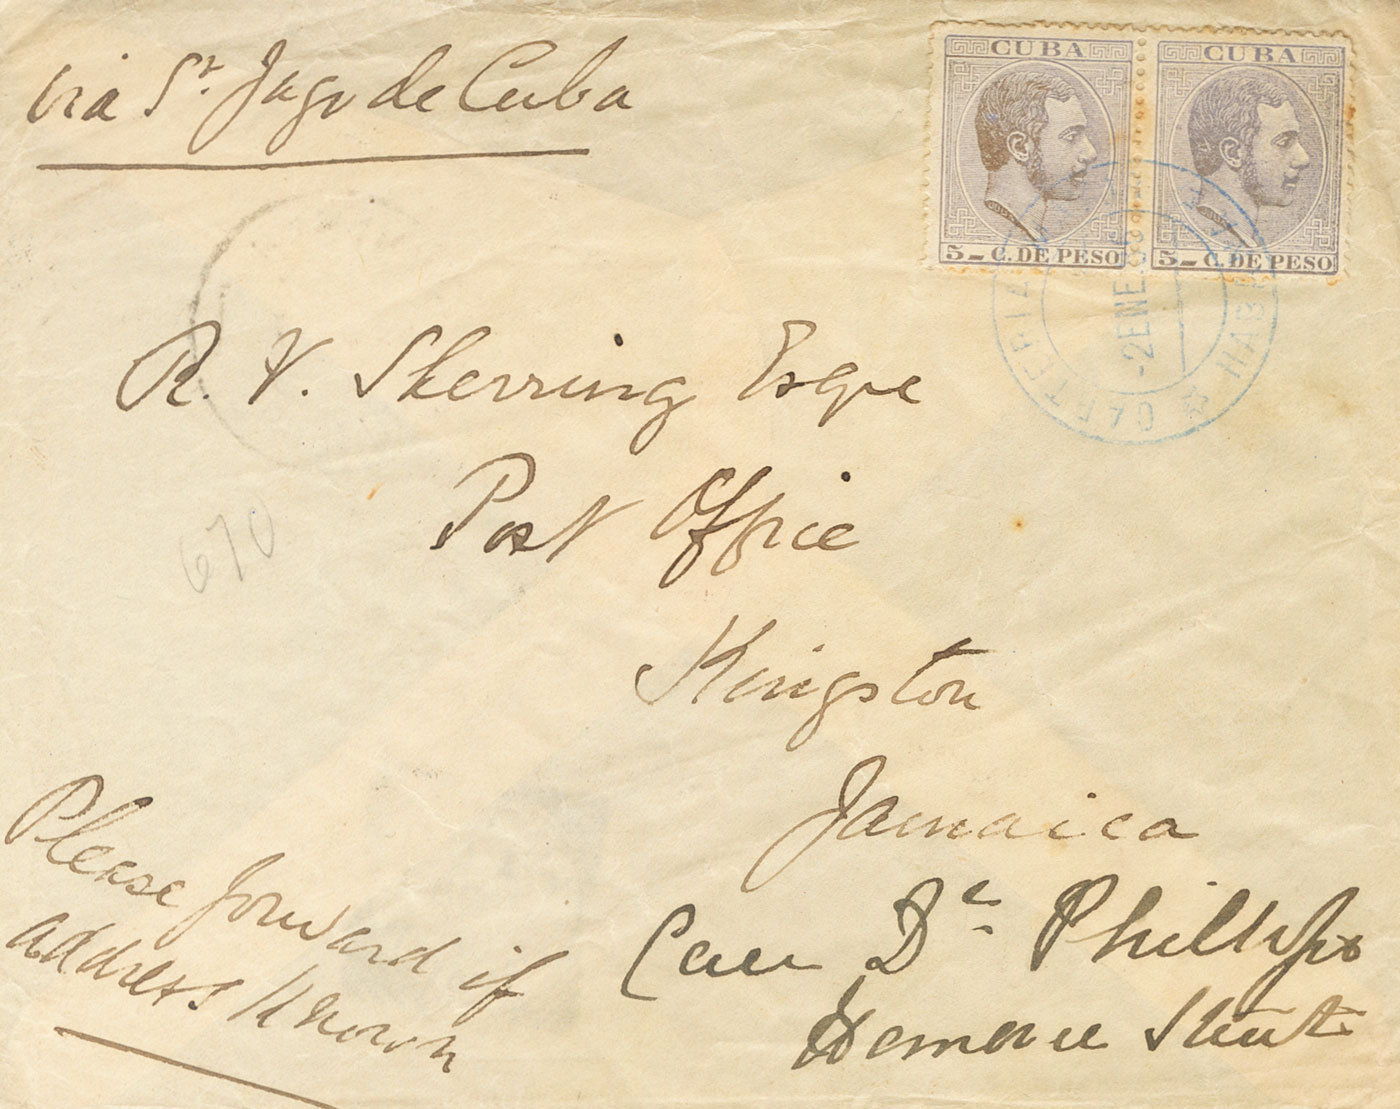 via St. Jago de Cuba
CUBA CUBA
5 - C. DE PESO 5 - C. DE PESO
-2 ENE
HAB
670
R. V. Sherring Esqre
Post Office
Kingston
Jamaica
Please forward if
address known
Care Dr. Phillips
Street